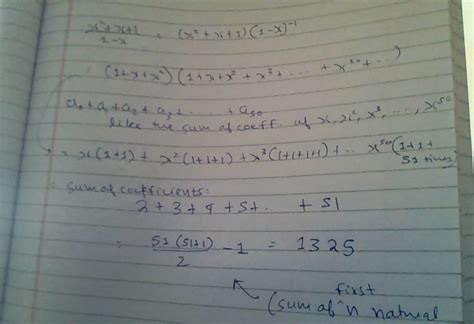 x²+x+1 / 1-x = (x²+x+1)(1-x)⁻¹
= (1+x+x²)(1+x+x²+x³+...+x⁵⁰+..)
a₀+a₁+a₂+a₃+.....+a₅₀
like the sum of coeff. of x,x²,x³,...,x⁵⁰
= x(1+1)+x²(1+1+1)+x³(1+1+1+1)+.. x⁵⁰(1+1+
51 times)
= sum of coefficients:
2+3+4+5+.. +51
= 51(51+1) / 2 -1 = 1325
first
(sum of ^n natural